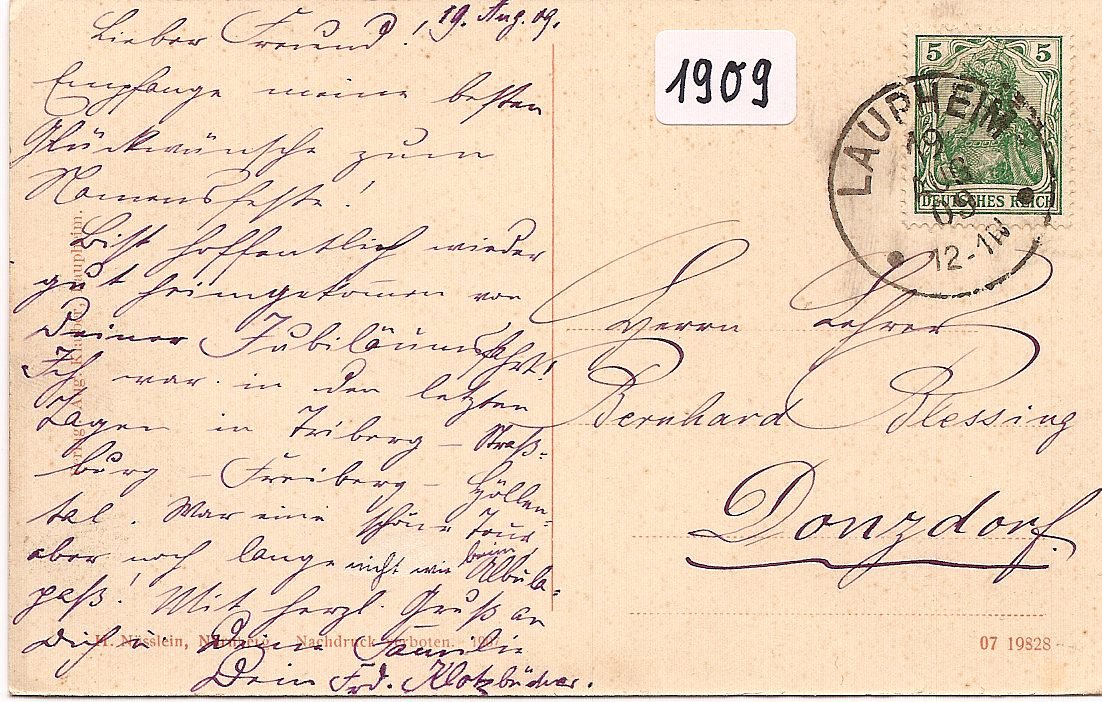 Lieber Freund! 19. Aug. 09.
Empfange meine besten
Glückwünsche zum
Namensfeste!
Bist hoffentlich wieder
gut heimgekommen von
Deiner Jubiläumsfahrt!
Ich war in den letzten
Tagen in Triberg – Straß-
burg – Freiberg – Höllen-
tal. War eine schöne Tour
aber noch lange nicht wie beim Albula-
paß! Mit herzl. Gruß an
Dich u. Deine Familie
Dein Frd. Klotzbücher.
1909
5 5
DEUTSCHES REICH
LAUPHEIM
19
AUG
09
12-1N
Herrn Lehrer
Bernhard Blessing
Donzdorf.
Aug. Klaiber, Laupheim.
H. Nässlein, Nürnberg. Nachdruck verboten. 1907
07 19828